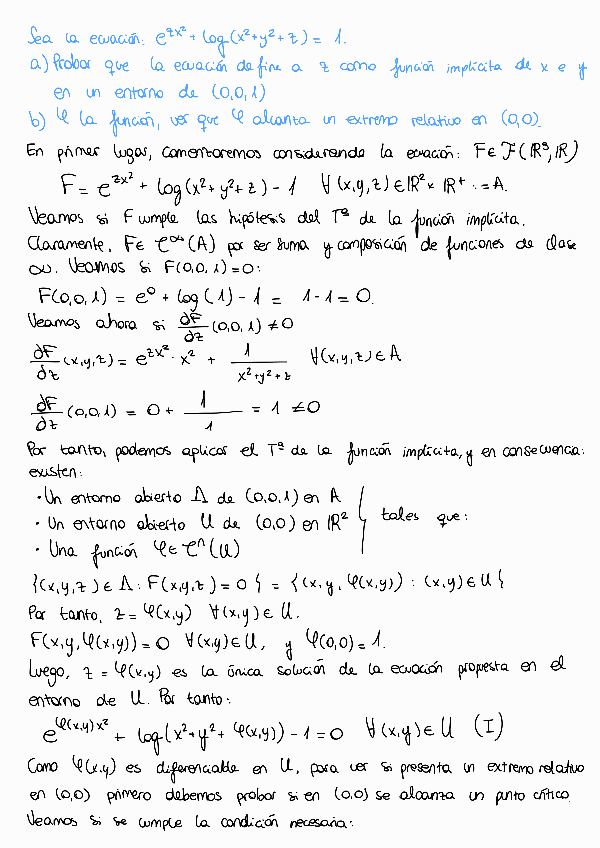 Sea la ecuación: e^{zx²} + log(x²+y²+z) = 1.
a) Probar que la ecuación define a z como función implícita de x e y
en un entorno de (0,0,1)
b) φ la función, ver que φ alcanza un extremo relativo en (0,0).
En primer lugar, comenzaremos considerando la ecuación: F∈ℱ(ℝ³,ℝ)
F = e^{zx²} + log(x²+y²+z) - 1 ∀(x,y,z)∈ℝ²×ℝ⁺ := A.
Veamos si F cumple las hipótesis del Tª de la función implícita.
Claramente, F∈ C^∞(A) por ser suma y composición de funciones de clase
∞. Veamos si F(0,0,1)=0:
F(0,0,1) = e⁰ + log(1) - 1 = 1-1 = 0.
Veamos ahora si ∂F/∂z (0,0,1) ≠ 0
∂F/∂z (x,y,z) = e^{zx²} · x² + 1/(x²+y²+z) ∀(x,y,z)∈A
∂F/∂z (0,0,1) = 0 + 1/1 = 1 ≠ 0
Por tanto, podemos aplicar el Tª de la función implícita, y en consecuencia:
existen:
· Un entorno abierto Δ de (0,0,1) en A
· Un entorno abierto U de (0,0) en ℝ² } tales que:
· Una función φ∈C^1(U)
{(x,y,z)∈Δ : F(x,y,z)=0} = {(x,y,φ(x,y)) : (x,y)∈U}
Por tanto, z=φ(x,y) ∀(x,y)∈U.
F(x,y,φ(x,y))=0 ∀(x,y)∈U, y φ(0,0)=1.
Luego, z = φ(x,y) es la única solución de la ecuación propuesta en el
entorno de U. Por tanto:
e^{φ(x,y)x²} + log(x²+y²+φ(x,y)) - 1 = 0 ∀(x,y)∈U (I)
Como φ(x,y) es diferenciable en U, para ver si presenta un extremo relativo
en (0,0) primero debemos probar si en (0,0) se alcanza un punto crítico.
Veamos si se cumple la condición necesaria: